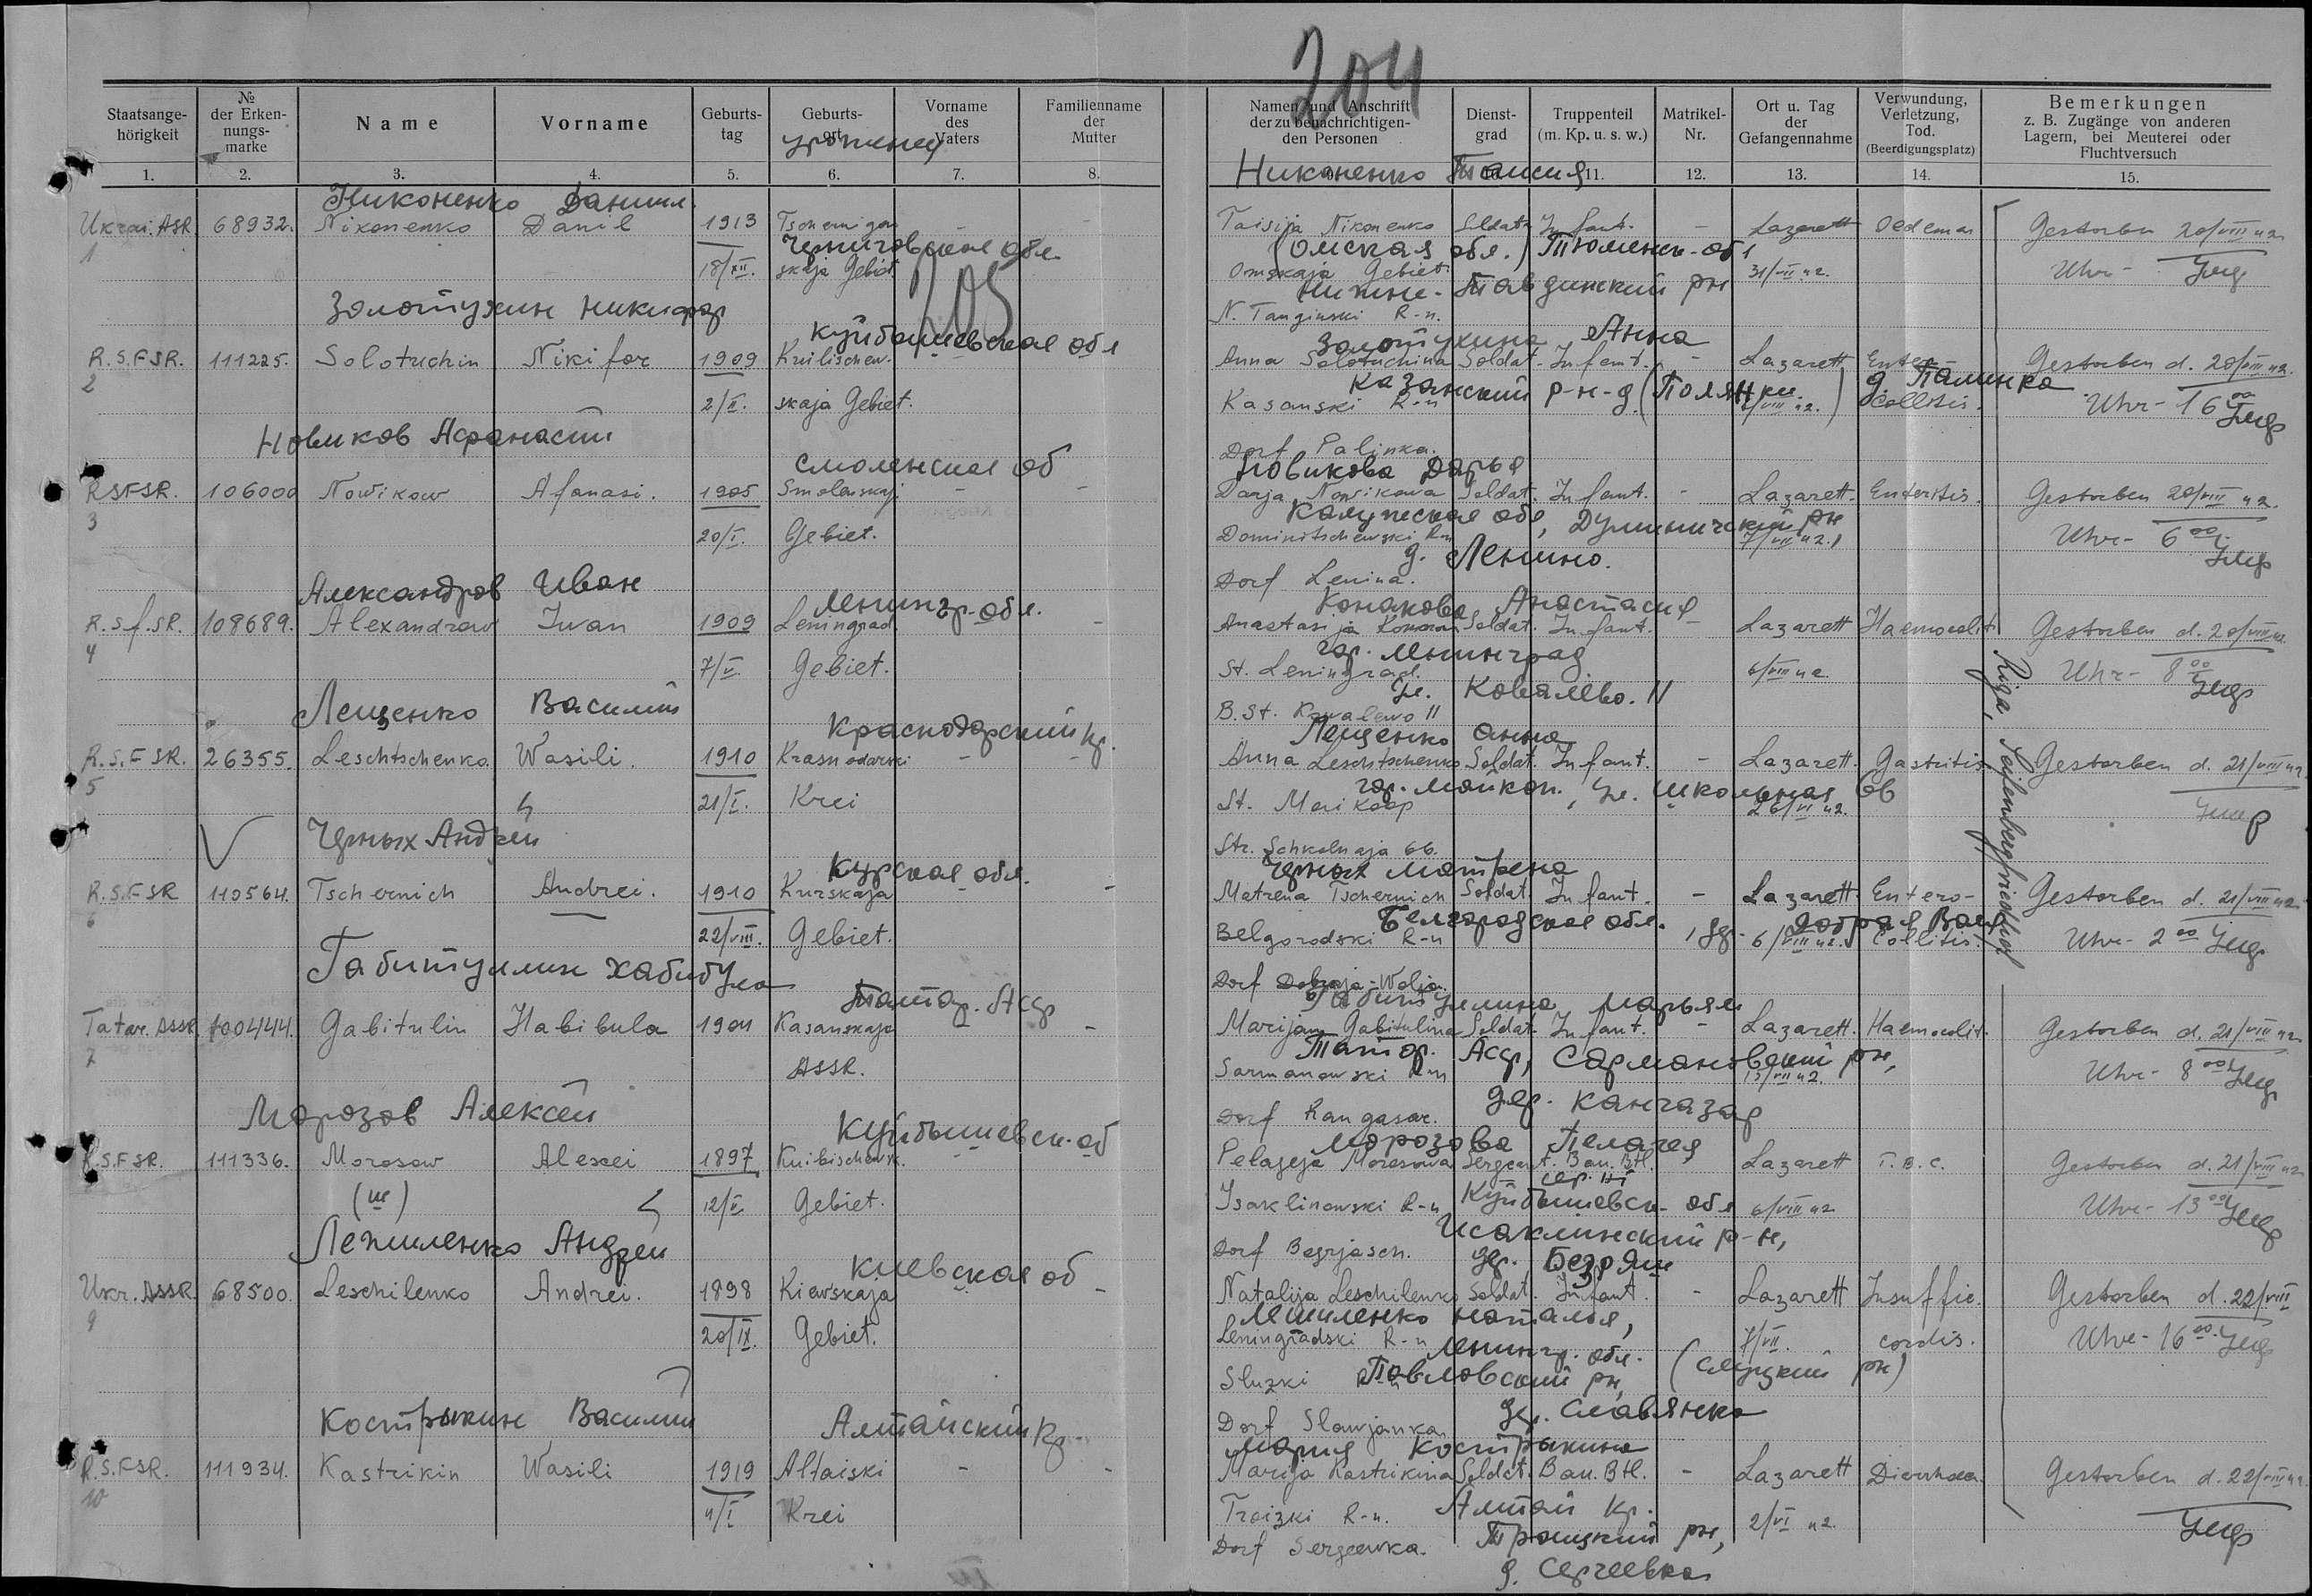 204
Staatsange-hörigkeit № der Erken-nungs-marke Name Vorname Geburts-tag Geburts-ort Vorname des Vaters Familienname der Mutter Namen und Anschrift der zu benachrichtigen-den Personen Dienst-grad Truppenteil (m. Kp. u. s. w.) Matrikel-Nr. Ort u. Tag der Gefangennahme Verwundung, Verletzung, Tod. (Beerdigungsplatz) Bemerkungen z. B. Zugänge von anderen Lagern, bei Meuterei oder Fluchtversuch
1. 2. 3. 4. 5. 6. 7. 8. 11. 12. 13. 14. 15.
Никоненко Данил Никоненко Таисия
Ukrai. ASR. 68932. Nikonenko Danil 1913 Tschernigow - - Taisija Nikonenko Soldat Infant. - Lazarett Oedeman Gestorben 20/VIII 42
1 Черниговская обл. (Омская обл.) Тюменск. обл
18/XII. skaja Gebiet Omskaja Gebiet 31/VII 42. Uhr-
205 Нижне-Тавдинский рн
N. Tanginski R-n.
Золотухин Никифор Куйбышевская обл Золотухина Анна
R.S.FSR. 111225. Solotuchin Nikifor 1909 Kuilischew. Anna Solotuchina Soldat Infant. - Lazarett Entero- Gestorben d. 20/VIII 42.
2 Казанский р-н-д (Полянки) д. Палинка
2/II. skaja Gebiet. Kasanski R-n /VIII 42. Collitis. Uhr- 16 00
Dorf Palinka.
Новиков Афанасий Смоленская об Новикова Дарья
RSFSR. 106000 Nowikow Afanasi. 1905 Smolenskaj. - - Darja Nowikowa Soldat. Infant. - Lazarett. Enteritis. Gestorben 20/VIII 42.
3 Калужская обл, Думиничский рн
20/I. Gebiet. Dominitschewski R-n 7/VII 42. Uhr- 6 00
д. Ленино.
Dorf Lenina.
Александров Иван Ленингр-обл. Конакова Анастасия
R.S.f.SR. 108689. Alexandrow Iwan 1909 Leningrad. - Anastasija Soldat. Infant. - Lazarett Haemocolit Gestorben d. 20/VIII 42.
4 гор. Ленинград
7/V. Gebiet. St. Leningrad. 6/VIII 42. Uhr- 8 00
ул. Ковалево. II
B.St. Kowalewo II
Лещенко Василий Краснодарский кр. Лещенко Анна
R.S.FSR. 26355. Leschtschenko. Wasili. 1910 Krasnodarski - - Anna Leschtschenko Soldat. Infant. - Lazarett. Gastritis Gestorben d. 21/VIII 42
5 гор. Майкоп, ул. Школьная 66
21/I. Krei St. Maikoop 26/VI 42.
Str. Schkolnaja 66.
Черных Андрей Курская обл. Черных Матрена
R.S.FSR 110564. Tschernich Andrei. 1910 Kurskaja - - Matrena Tschernich Soldat. Infant. - Lazarett. Entero- Gestorben d. 21/VIII 42
6 Белгородская обл. Добрая Воля
22/VIII. Gebiet. Belgorodski R-n 6/VIII 42. Collitis. Uhr- 2 00
Dorf Dobraja-Wolja.
Riga, Seifenbergfriedhof
Габитуллин Хабибула Татар. Асср Марьям
Tatar. ASSR 100444. Gabitulin Habibula 1904 Kasanskaja - Marijam Gabitulina Soldat. Infant. - Lazarett. Haemocolit. Gestorben d. 21/VIII 42
7 Татар. Асср, Сармановский рн,
ASSR. Sarmanowski R-n 13/VII 42. Uhr- 8 00
дер. Кангазар
Dorf Rangasar.
Морозов Алексей Куйбышевск. об Морозова Пелагея
R.S.FSR. 111336. Morosow Alexei 1897 Kuibischewsk. Pelageja Morosowa Sergeant. Bau. Btl. Lazarett T.B.C. Gestorben d. 21/VIII 42
(ш) 12/II Gebiet. Isaklinowski R-n Куйбышевск- обл 6/VIII 42 Uhr- 13 00
Исаклинский р-н,
Dorf Begrjasch. дер. Безряш
Лежиленко Андрей Киевская об
Ukr. ASSR 68500. Leschilenko Andrei. 1898 Kiewskaja - Natalija Leschilenko Soldat. Infant. - Lazarett Insuffic. Gestorben d. 22/VIII
9 Лешиленко Наталья,
20/IX. Gebiet. Leningradski R-n 7/VII. cordis. Uhr- 16 00
Ленингр. обл.
Sluzki R-n Павловский рн (Слуцкий рн)
Dorf Slawjanka дер. Славянка
Кострыкин Василий Алтайский кр. Мария Кострыкина
R.S.FSR. 111934. Kastrikin Wasili 1919 Altaiski - - Marija Kastrikina Soldat. Bau. Btl. - Lazarett Diarrhoea. Gestorben d. 22/VIII 42
10 4/I Krei Troizki R-n. Алтай кр. 2/VI 42
Dorf Sergeewka. Троицкий рн,
д. Сергеевка